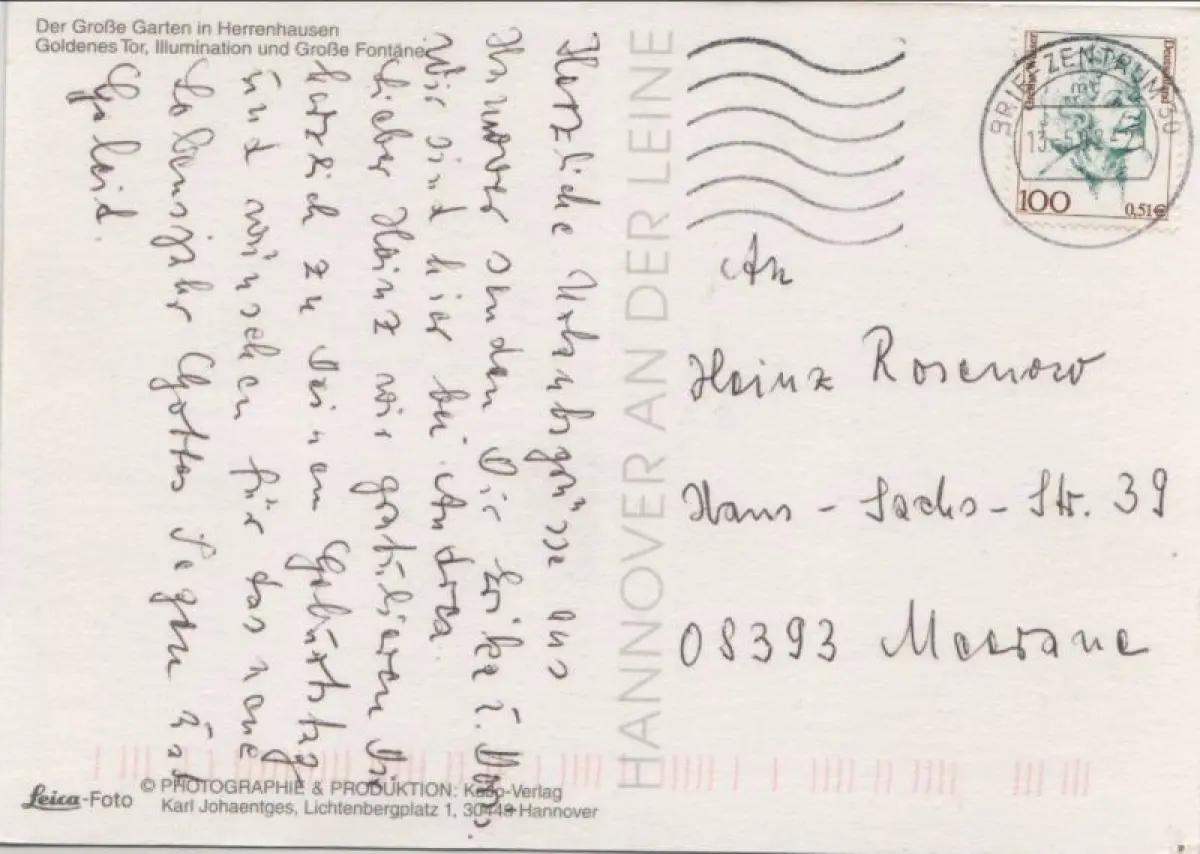 Der Große Garten in Herrenhausen
Goldenes Tor, Illumination und Große Fontäne
Herzliche Urlaubsgrüsse aus
Hannover senden Dir Erika u.
Wir sind hier bei Andrea.
Lieber Heinz wir gratulieren Dir
herzlich zu Deinem Geburtstag
und wünschen für das neue
Lebensjahr Gottes Segen und
Geleit.
HANNOVER AN DER LEINE
BRIEFZENTRUM 30
mc
Deutschland
100
0,51€
An
Heinz Rosenow
Hans-Sachs-Str. 39
08393 Meerane
Leica-Foto
© PHOTOGRAPHIE & PRODUKTION: Verlag
Karl Johaentges, Lichtenbergplatz 1, 30449 Hannover